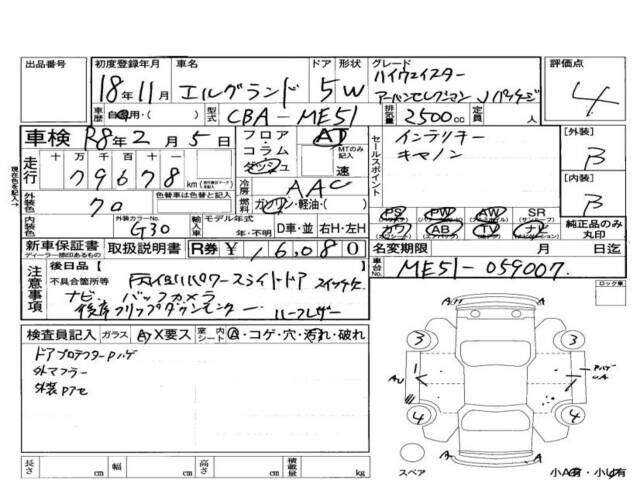 出品番号 初度登録年月 車名 ドア 形状 グレード 評価点
18年11月 エルグランド 5W ハイウェイスター
アーバンセレクション Jパッケージ 4
車歴 自家用・( ) 型式 CBA-ME51 排気量 2500cc 定員 人
車検 R8年2月5日 フロア コラム ダッシュ AT MTのみ記入 速
セールスポイント インテリキー
キャノン
【外装】 B
走行 十万千百十一 79678 km
冷房 AAC
【内装】 B
外装色 クロ 色替車は色替と記入 燃料 ガソリン・軽油・( )
PS PW AW SR
カワ AB TV ナビ
純正品のみ丸印
内装色 外装カラーNo. G30 輸入車 モデル年式 年・不明 D車・並 右H・左H
新車保証書 取扱説明書 R券 ¥16,080 名変期限 月 日迄
ディーラー捺印あるもの
車台No. ME51-059007
注意事項 後日品
不具合箇所等 両側パワースライドドア スイッチ欠
ナビ バックカメラ
後席フリップダウンモニター ハーフレザー
ロック車
検査員記入 ガラス A・X要ス 室内シート A・コゲ・穴・汚れ・破れ
ドアプロテクターPハゲ
外マフラー
外装Pアセ
A A
3 3
1
AU UA
4 4
A A
スペア 小A有・小U有
長さ cm 幅 cm 高さ cm 積載量 kg
現在色を記入→